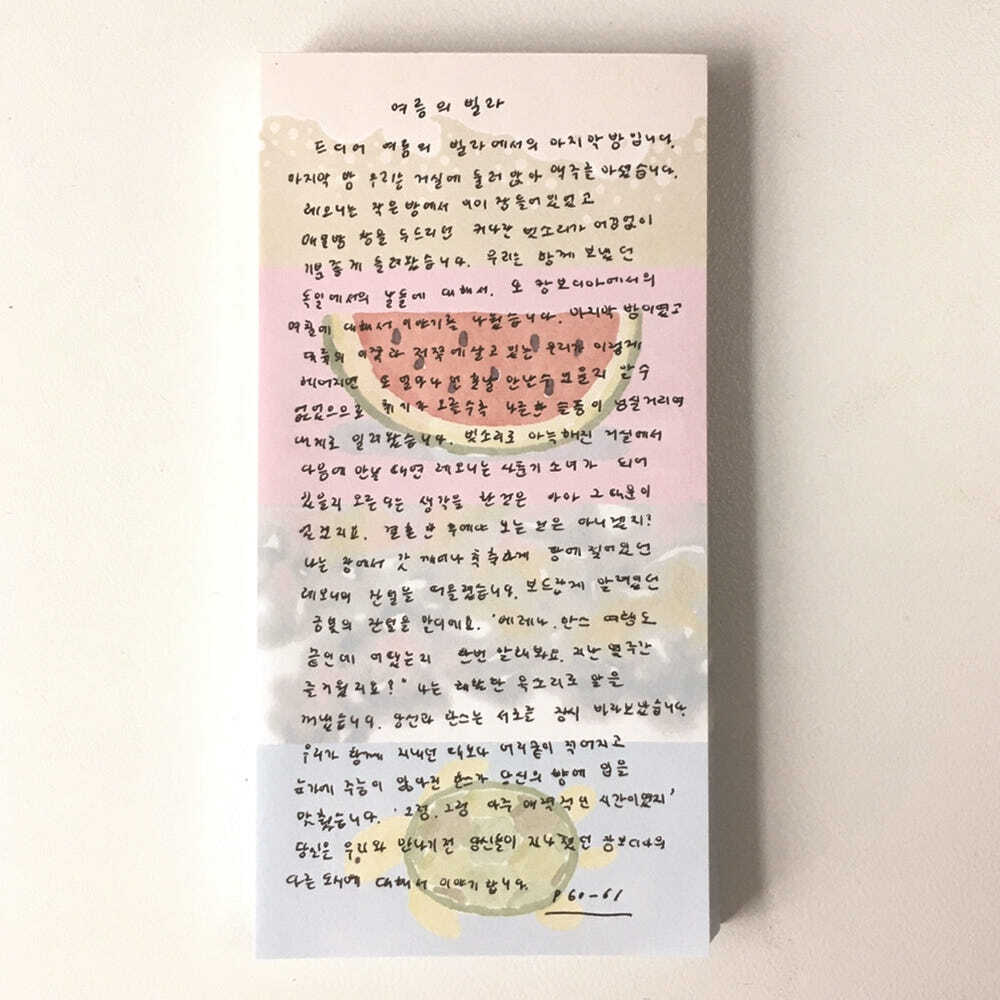 여름의 빌라
드디어 여름의 빌라에서의 마지막 밤입니다.
마지막 밤 우리는 거실에 둘러 앉아 맥주를 마셨습니다.
레오니는 작은 방에서 이미 잠들어 있었고
창을 두드리던 커다란 빗소리가 어김없이
기분 좋게 들려왔습니다. 우리는 함께 보냈던
독일에서의 날들에 대해서, 또 캄보디아에서의
여행에 대해서 이야기를 나눴습니다. 마지막 밤이었고
이쪽과 저쪽에 살고 있는 우리가 이렇게
헤어지면 또 얼마나 먼 훗날 만날 수 있을지 알 수
없었으므로 취기가 오를수록 나른한 슬픔이 넘실거리며
내게로 밀려왔습니다. 빗소리로 아늑해진 거실에서
다음에 만날 때면 레오니는 사춘기 소녀가 되어
있을지 모른다는 생각을 한 것은 아마 그 때문이
었겠지요. 결혼한 후에나 보는 것은 아니겠지?
나는 잠에서 갓 깨어나 축축하게 땀에 젖어있던
레오니의 잔털을 떠올렸습니다. 보드랍게 말려있던
금빛의 잔털을 말이에요. "베레나, 한스 여행도
끝인데 어땠는지 한번 말해봐요. 지난 열흘간
즐거웠지요?" 나는 목소리로 말을
꺼냈습니다. 당신과 한스는 서로를 잠시 바라보았습니다.
우리가 함께 지내던 때보다 머리숱이 적어지고
눈가에 주름이 많아진 한스가 당신의 뺨에 입을
맞췄습니다. '그럼, 그럼 아주 매력적인 시간이었지'
당신은 우리와 만나기 전 당신들이 지나쳤던 캄보디아의
다른 도시에 대해서 이야기합니다.
P 60-61